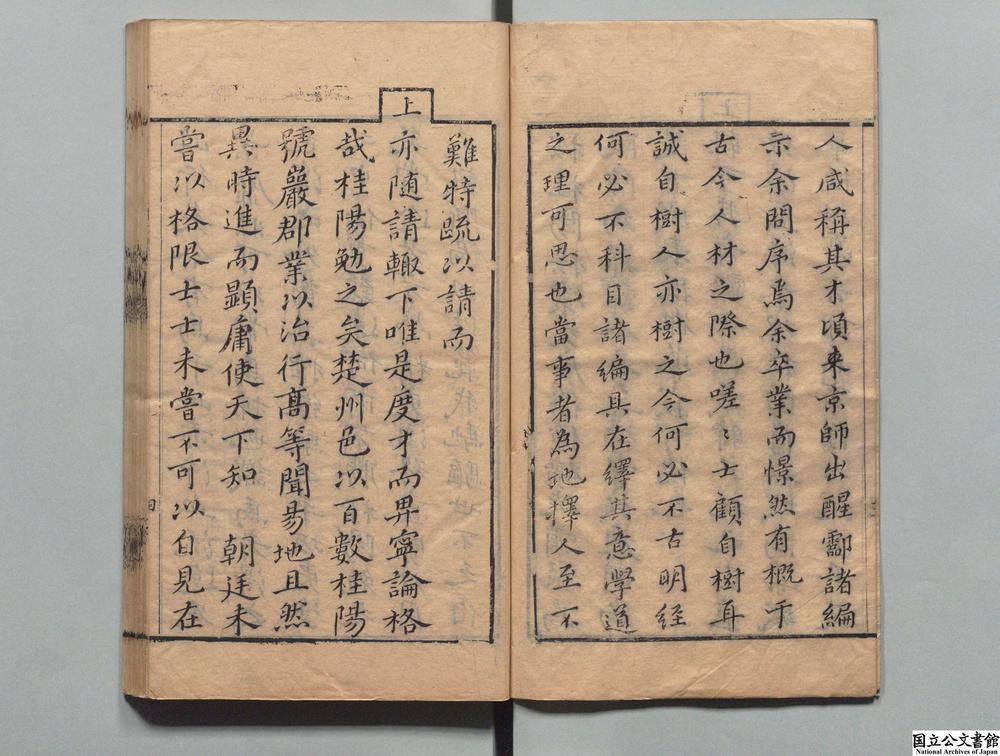 人咸稱其才頃来京師出醒酃諸編
示余問序焉余卒業而憬然有概于
古今人材之際也嗟〻士顧自樹耳
誠自樹人亦樹之今何必不古明經
何必不科目諸編具在繹其意學道
之理可思也當事者為地擇人至不
難特疏以請而
上
亦随請輙下唯是度才而畀寧論格
哉桂陽勉之矣楚州邑以百數桂陽
號巖郡業以治行髙等聞易地且然
異時進而顕庸使天下知 朝廷未
嘗以格限士士未嘗不可以自見在
四
国立公文書館
National Archives of Japan